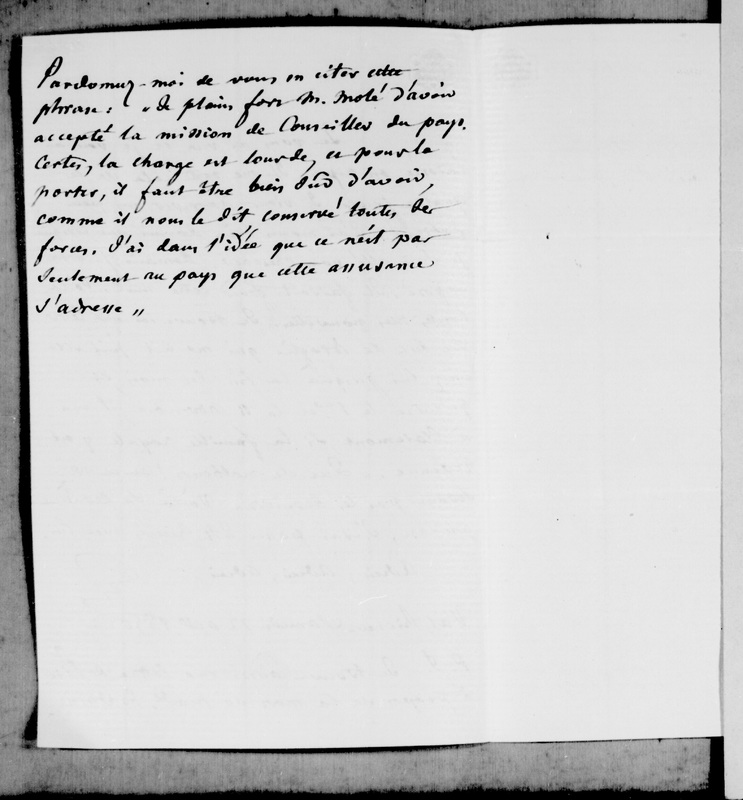 Pardonnez-moi de vous en citer cette
phrase : "Je plains fort M. Molé d'avoir
accepté la mission de Conseiller du pays.
Certes, la charge est lourde, et pour la
porter, il faut être bien sûr d'avoir,
comme il nous le dit conservé toutes ses
forces. J'ai dans l'idée que ce n'est pas
seulement au pays que cette assurance
s'adresse "